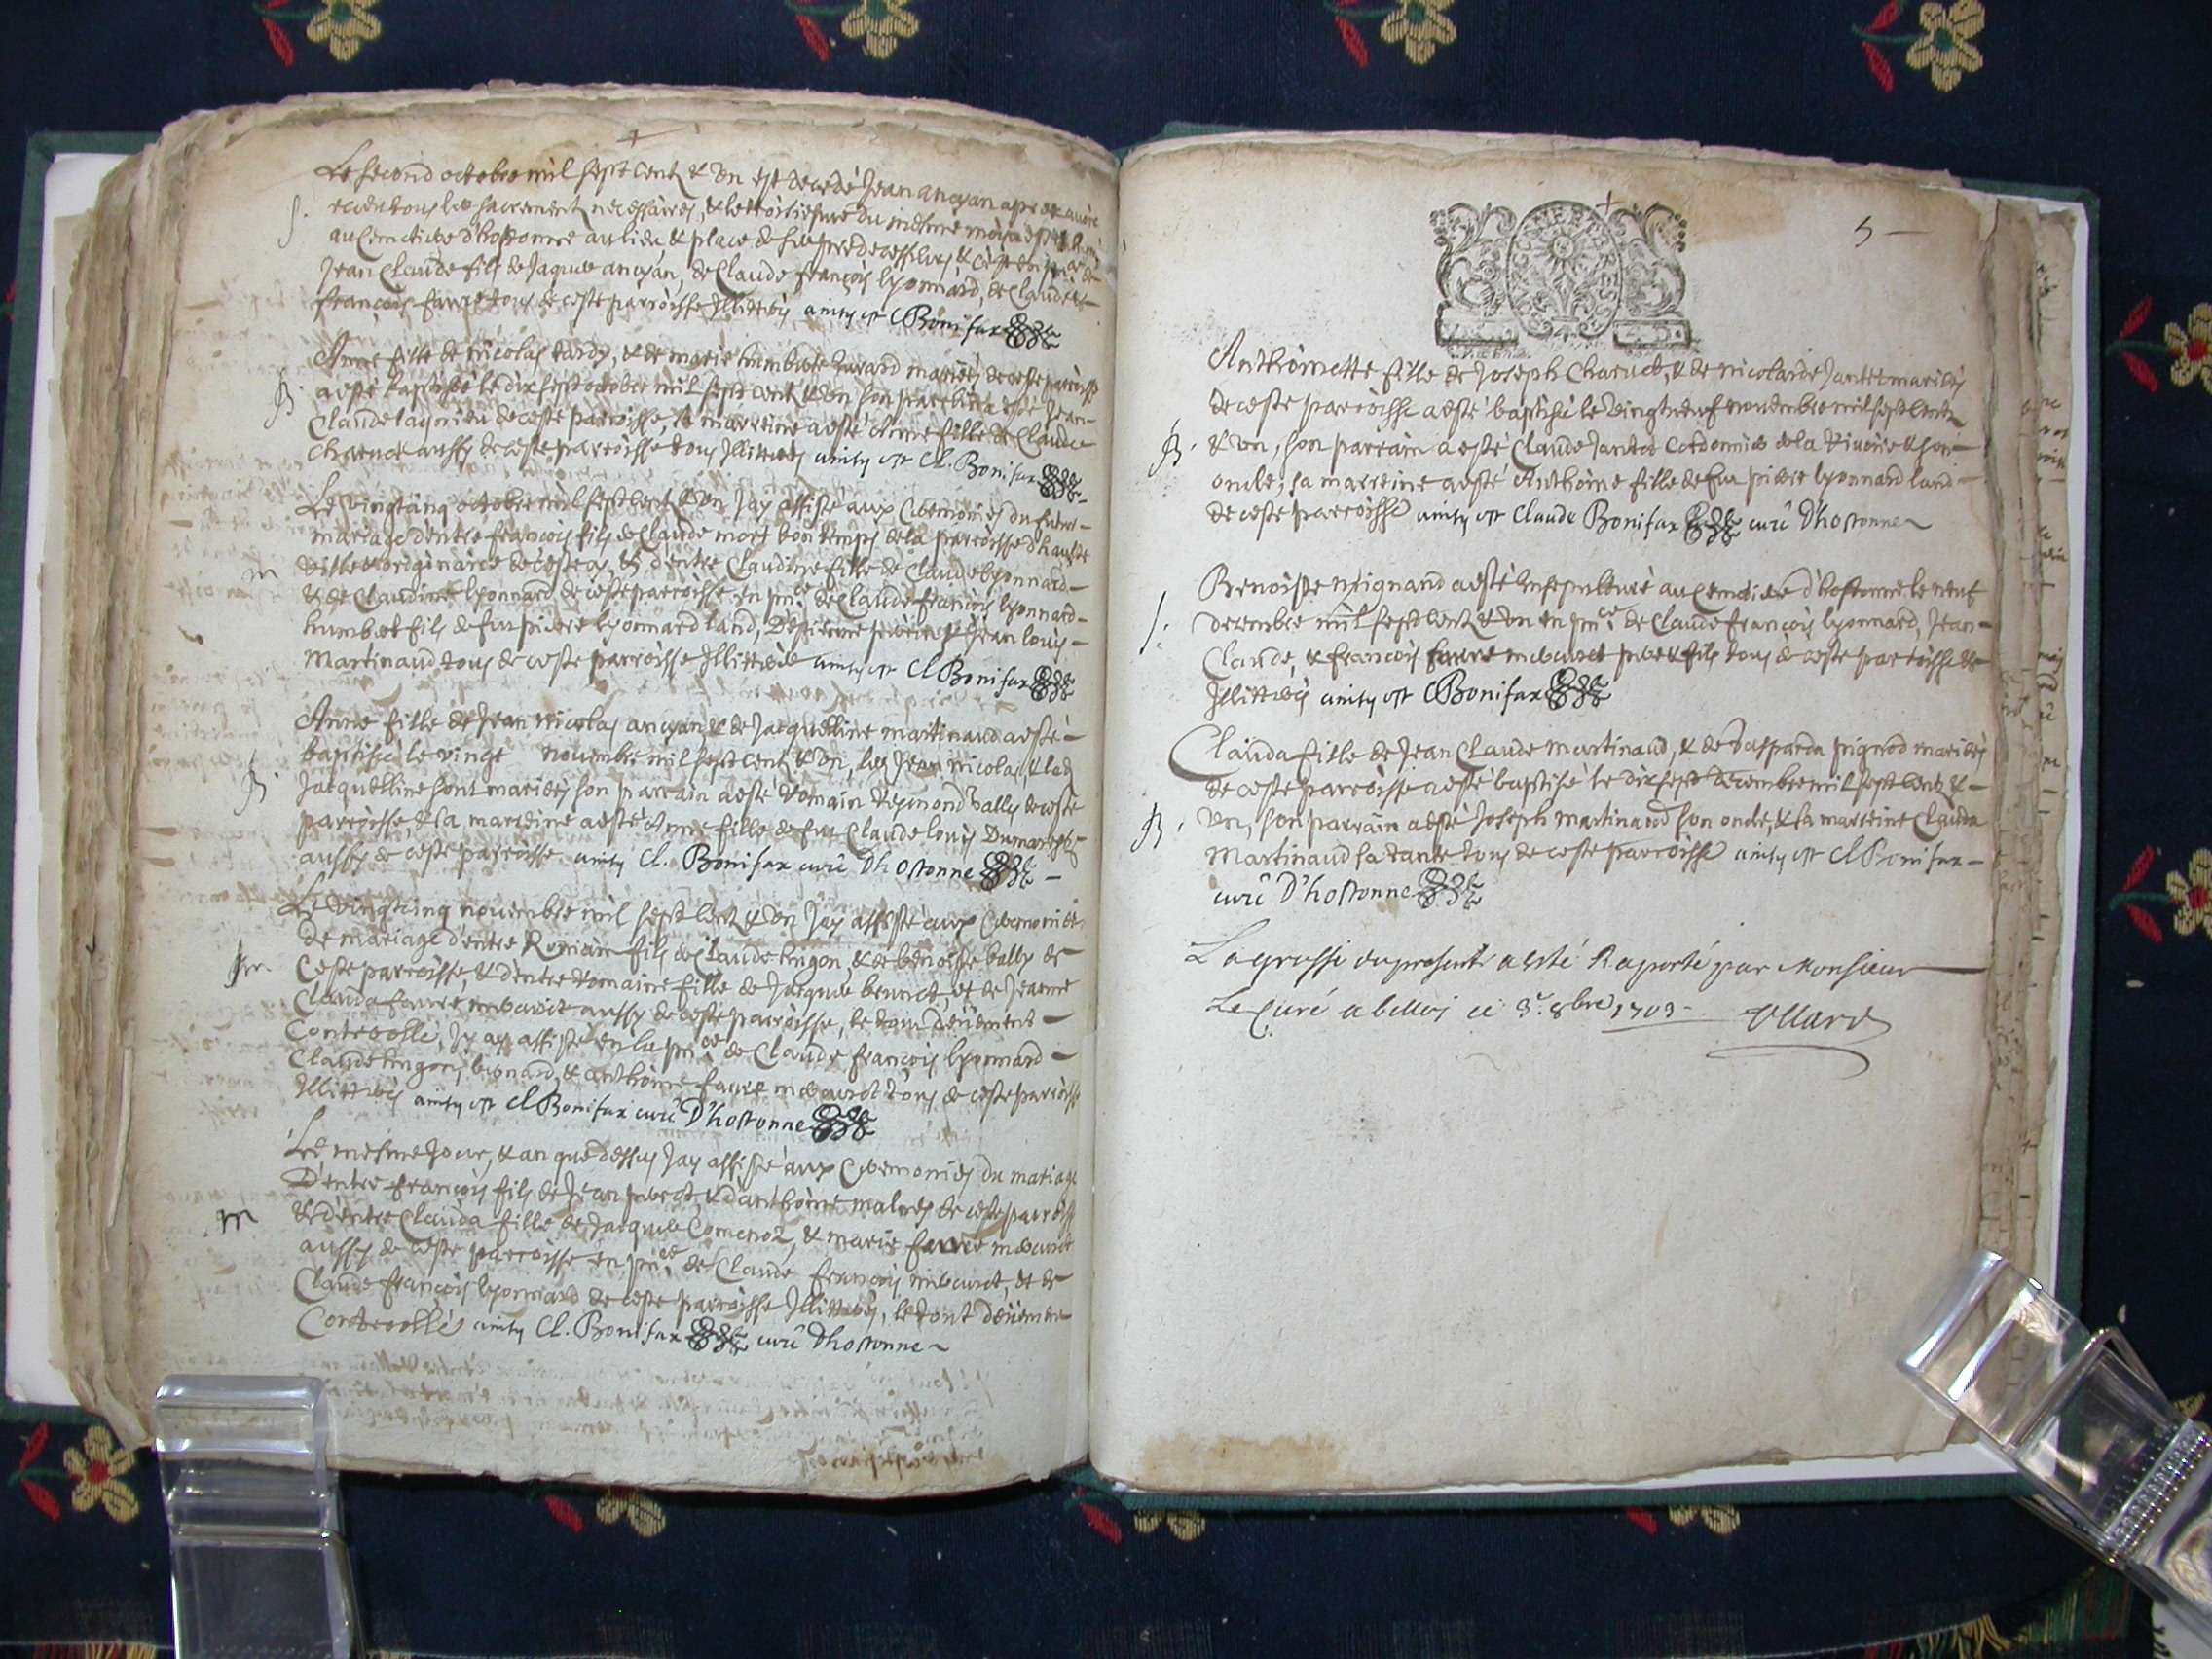 Le second octobre mil sept cent & un est decedé Jean ancian apres avoir
S. receu tous les sacrement necessaires, & le troisiesme du mesme mois
au cemetiere d'hostonne au lieu & place de ses predecesseurs &
Jean Claude fils de Jaques ancian, de Claude françois lyonnard, de Claude &
françois favre tous de ceste parroisse Illitterés ainsy est C Bonifax
Anne fille de nicolas tardy, & de marie humberte Juvard mariés de ceste parroisse
B. a esté baptisée le dix sept octobre mil sept cent & un son parrain a esté Jean
Claude de ceste parroisse, la marreine a esté Anne fille de Claude
Charvet aussy de ceste parroisse tous Illitterés ainsy est Cl. Bonifax
Le vingtcinq octobre mil sept cent & un Jay assisté aux Ceremonies du futur
mariage d'entre françois fils de Claude mort bontemps de la parroisse d'haulte
m ville & originaire de cestecy, & d'entre Claudine fille de Claude lyonnard
& de Claudine lyonnard de ceste parroisse en pnce de Claude françois lyonnard
humbert fils de feu pierre lyonnard land, & Jean louis
Martinaud tous de ceste parroisse Illitterés ainsy est Cl Bonifax
Anne fille de Jean nicolas ancian & de Jacquelline martinaud a esté
B. baptisée le vingt novembre mil sept cent & un, les Jean nicolas & lad
Jacquelline sont mariés son parrain a esté Romain Reymond bally de ceste
parroisse, & sa marreine a esté Anne fille de feu Claude louis Dumarest
aussy de ceste parroisse ainsy Cl. Bonifax curé Dhostonne
Le vingtcinq novembre mil sept cent & un Jay assisté aux Ceremonies
de mariage d'entre Romain fils de Claude hugon, & de benoiste bally de
m. Ceste parroisse, & d'entre Romaine fille de Jacques brunet, et de Jeanne
Clauda favre mercuret aussy de ceste parroisse, le tout deüement
Controollé, Jy ay assisté en la pnce de Claude françois lyonnard
Claude hugon, bernard, & anthoine favre mercuret tous de ceste parroisse
Illitterés ainsy est Cl Bonifax curé D'hostonne
Le mesme Jour, & an que dessus Jay assisté aux Ceremonies du mariage
D'entre françois fils de Jean & d'anthoine de ceste parroisse
m & d'entre Clauda fille de Jacques & marie favre mercuret
aussy de ceste parroisse en pnce de Claude françois mercuret, et de
Claude françois lyonnard de ceste parroisse Illitterés, le tout deüement
Controollé ainsy Cl. Bonifax curé Dhostonne
5
Anthoinette fille de Joseph Charvet, & de nicolarde Jantet mariés
de ceste parroisse a esté baptisé le vingtneuf novembre mil sept cent
B. & un, son parrain a esté Claude Jantet Cordonnier de la Riviere & son
oncle, sa marreine a esté Anthoine fille de feu pierre lyonnard land
de ceste parroisse ainsy est Claude Bonifax curé Dhostonne
Benoiste mignand a esté Ensepulturé au Cemetiere d'hostonne le neuf
S. decembre mil sept cent & un en pnce de Claude françois lyonnard, Jean
Claude, & françois favre mercuret pere & fils tous de ceste parroisse
Illitterés ainsy est C Bonifax
Clauda fille de Jean Claude Martinaud, & de Gasparda pignod mariés
de ceste parroisse a esté baptisé le dix sept decembre mil sept cent &
B. un, son parrain a esté Joseph Martinaud son oncle, & sa marreine Clauda
Martinaud sa tante tous de ceste parroisse ainsy est Cl Bonifax
curé D'hostonne
La grosse du present a esté Raporté par Monsieur
Le Curé a belley ce 3e 8bre 1703